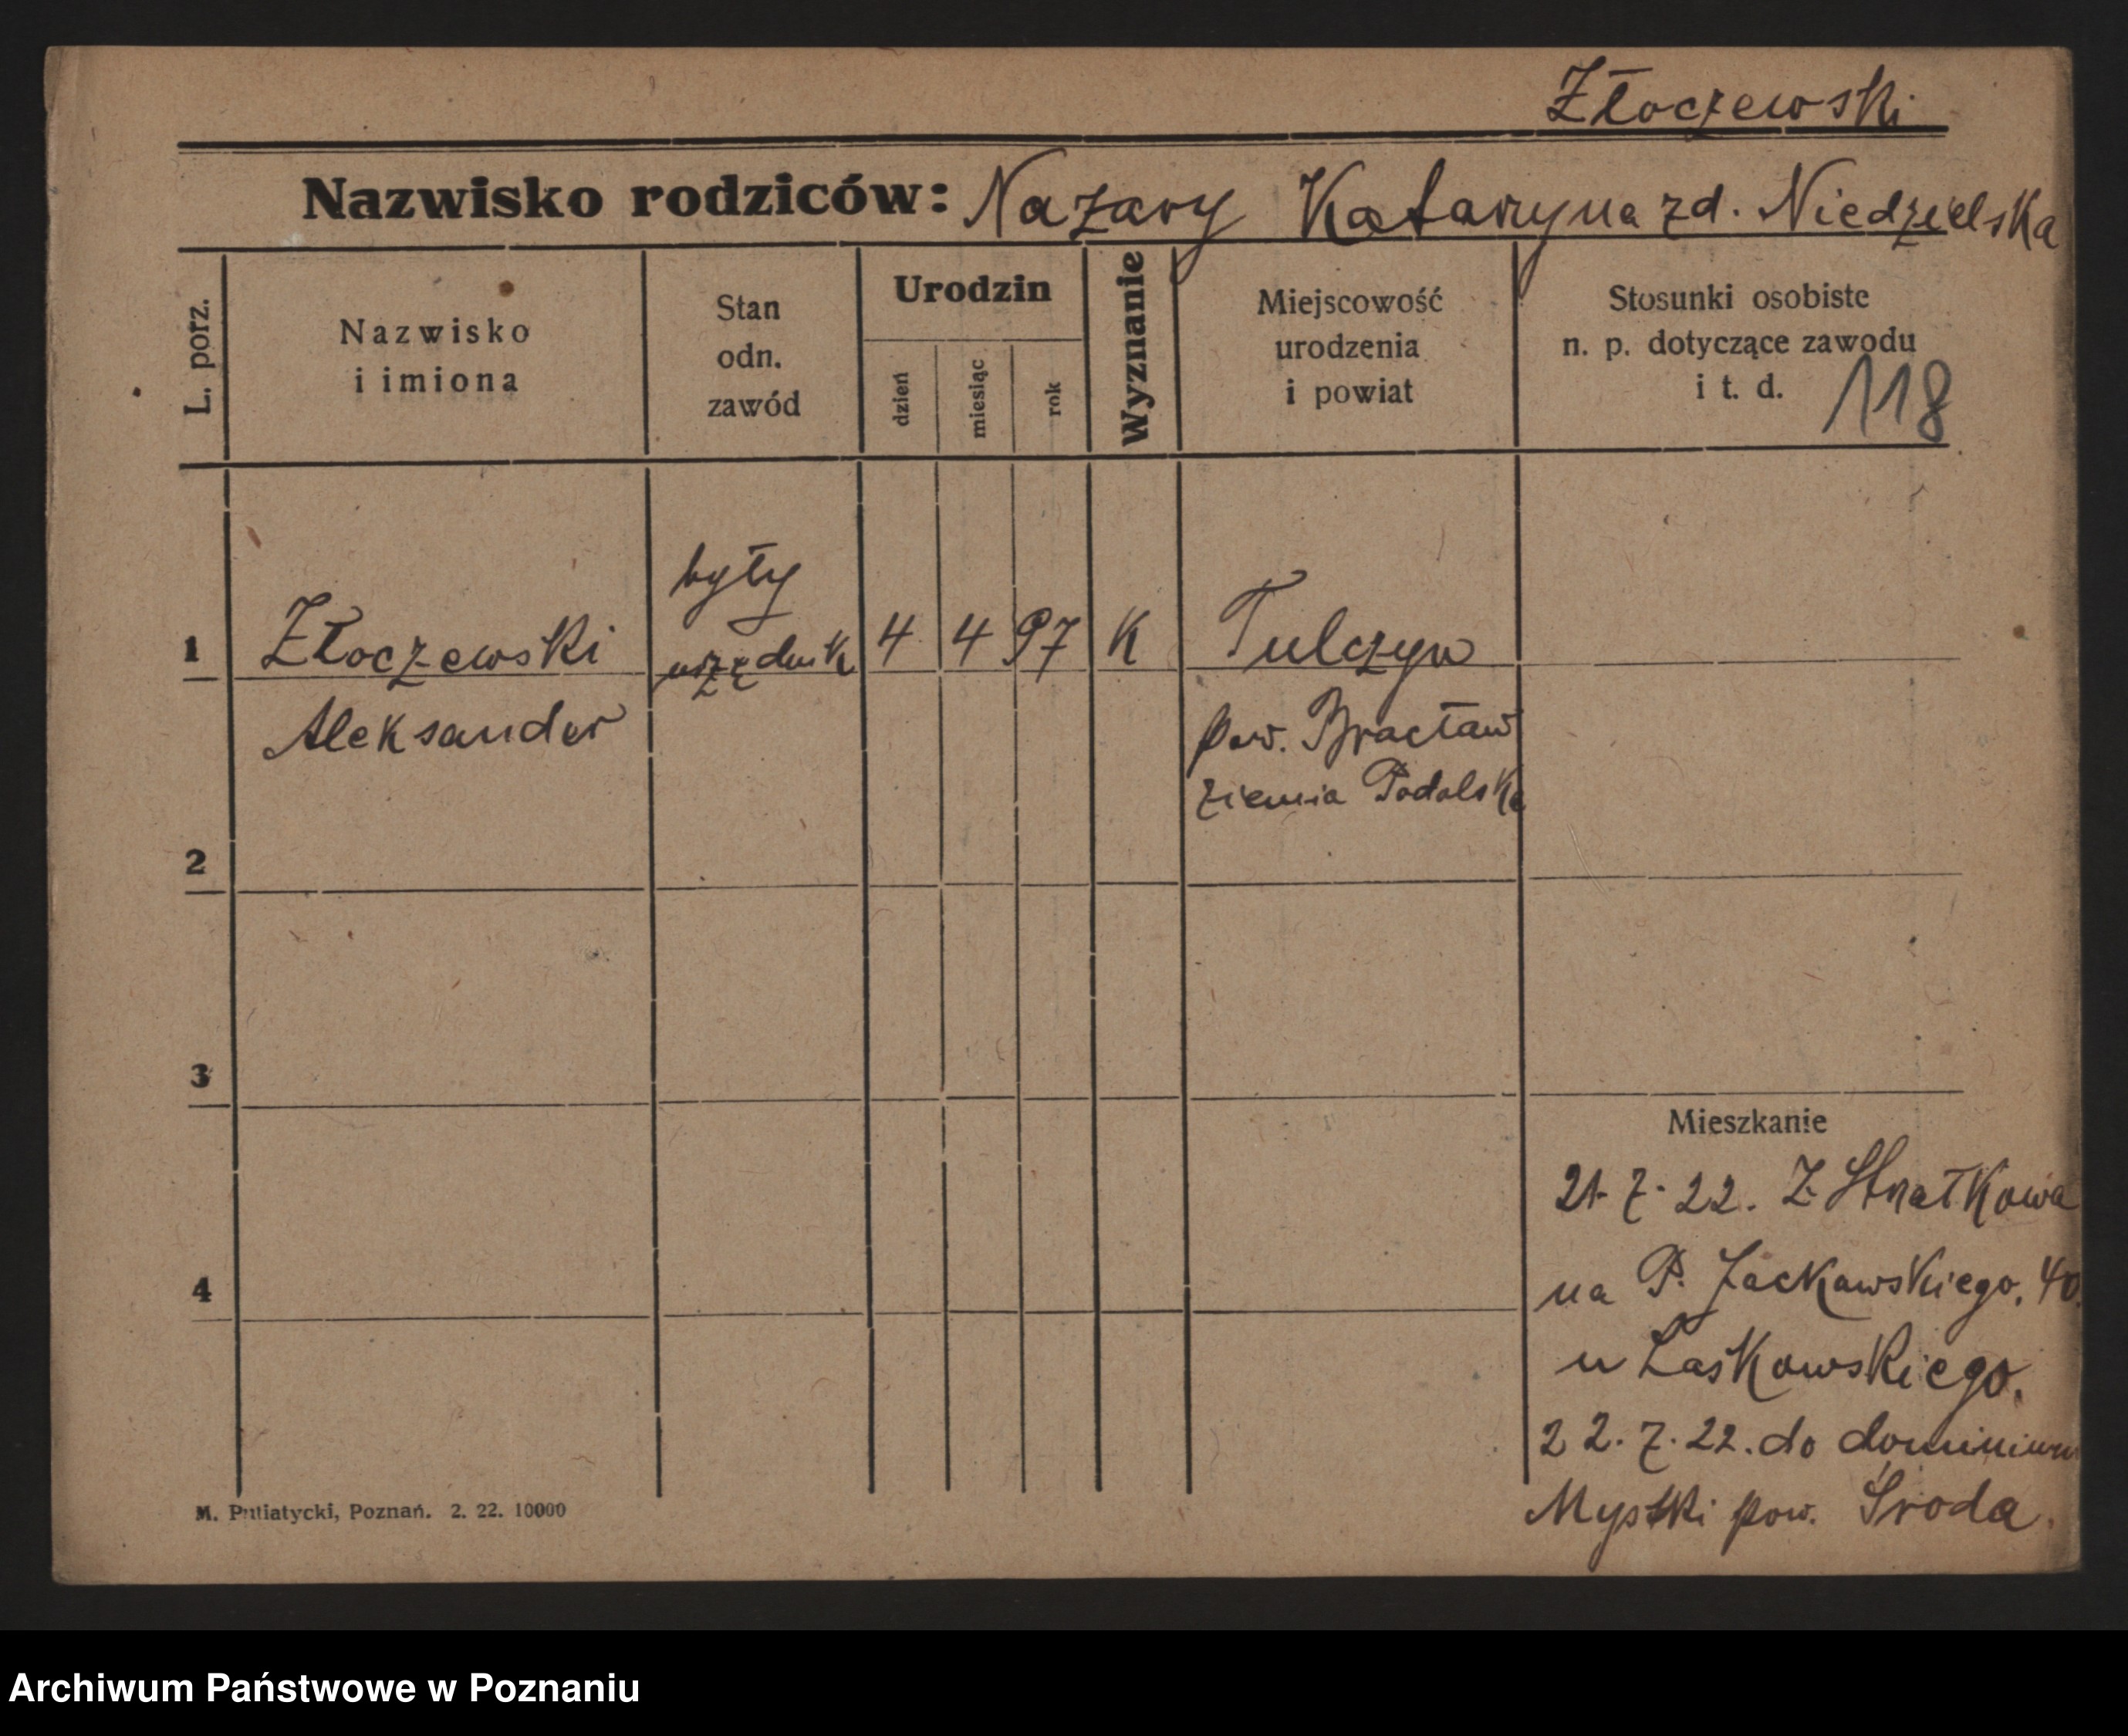 Złoczewski
Nazwisko rodziców: Nazary Kataryna zd. Niedzielska
L. porz.
Nazwisko
i imiona
Stan
odn.
zawód
Urodzin
dzień
miesiąc
rok
Wyznanie
Miejscowość
urodzenia
i powiat
Stosunki osobiste
n. p. dotyczące zawodu
i t. d.
118
1
Złoczewski
Aleksander
były
urzędnik
4 4 97 K
Tulczyn
pow. Bracław
ziemia Podolska
2
3
4
Mieszkanie
21. 7. 22. Z Strzałkowa
na P. Jackowskiego. 40.
u Laskowskiego.
22. 7. 22. do dominium
Mystki pow. Środa.
M. Putiatycki, Poznań. 2. 22. 10000
Archiwum Państwowe w Poznaniu